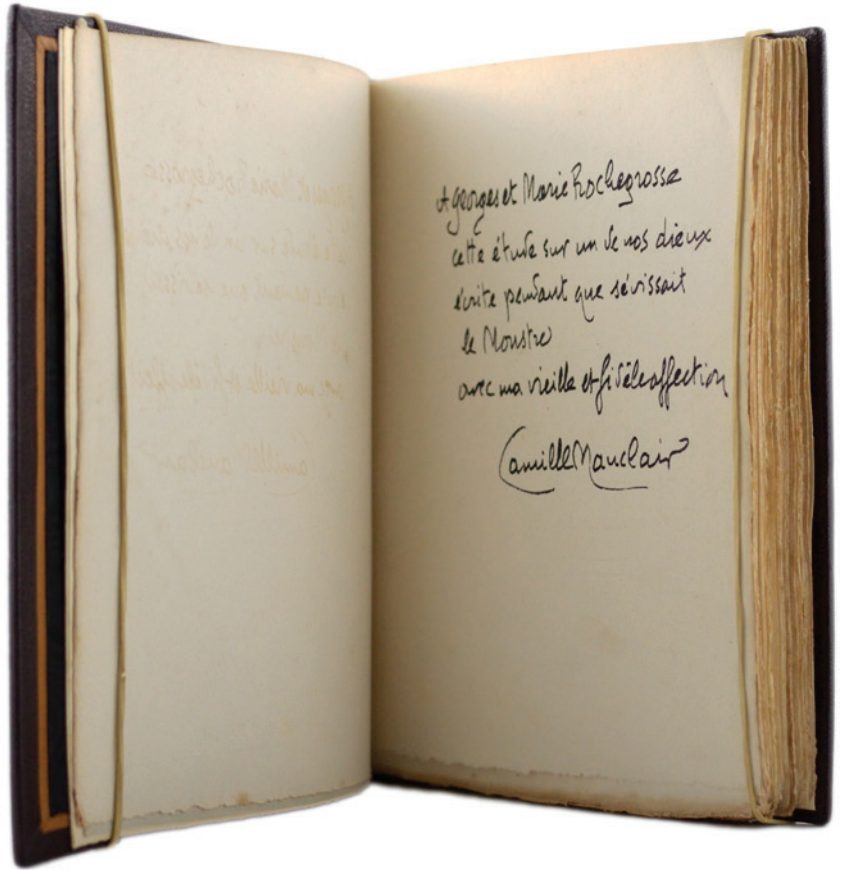 A Georges et Marie Rochegrosse
cette étude sur un de nos dieux
écrite pendant que sévissait
le Monstre
avec ma vieille et fidèle affection
Camille Mauclair